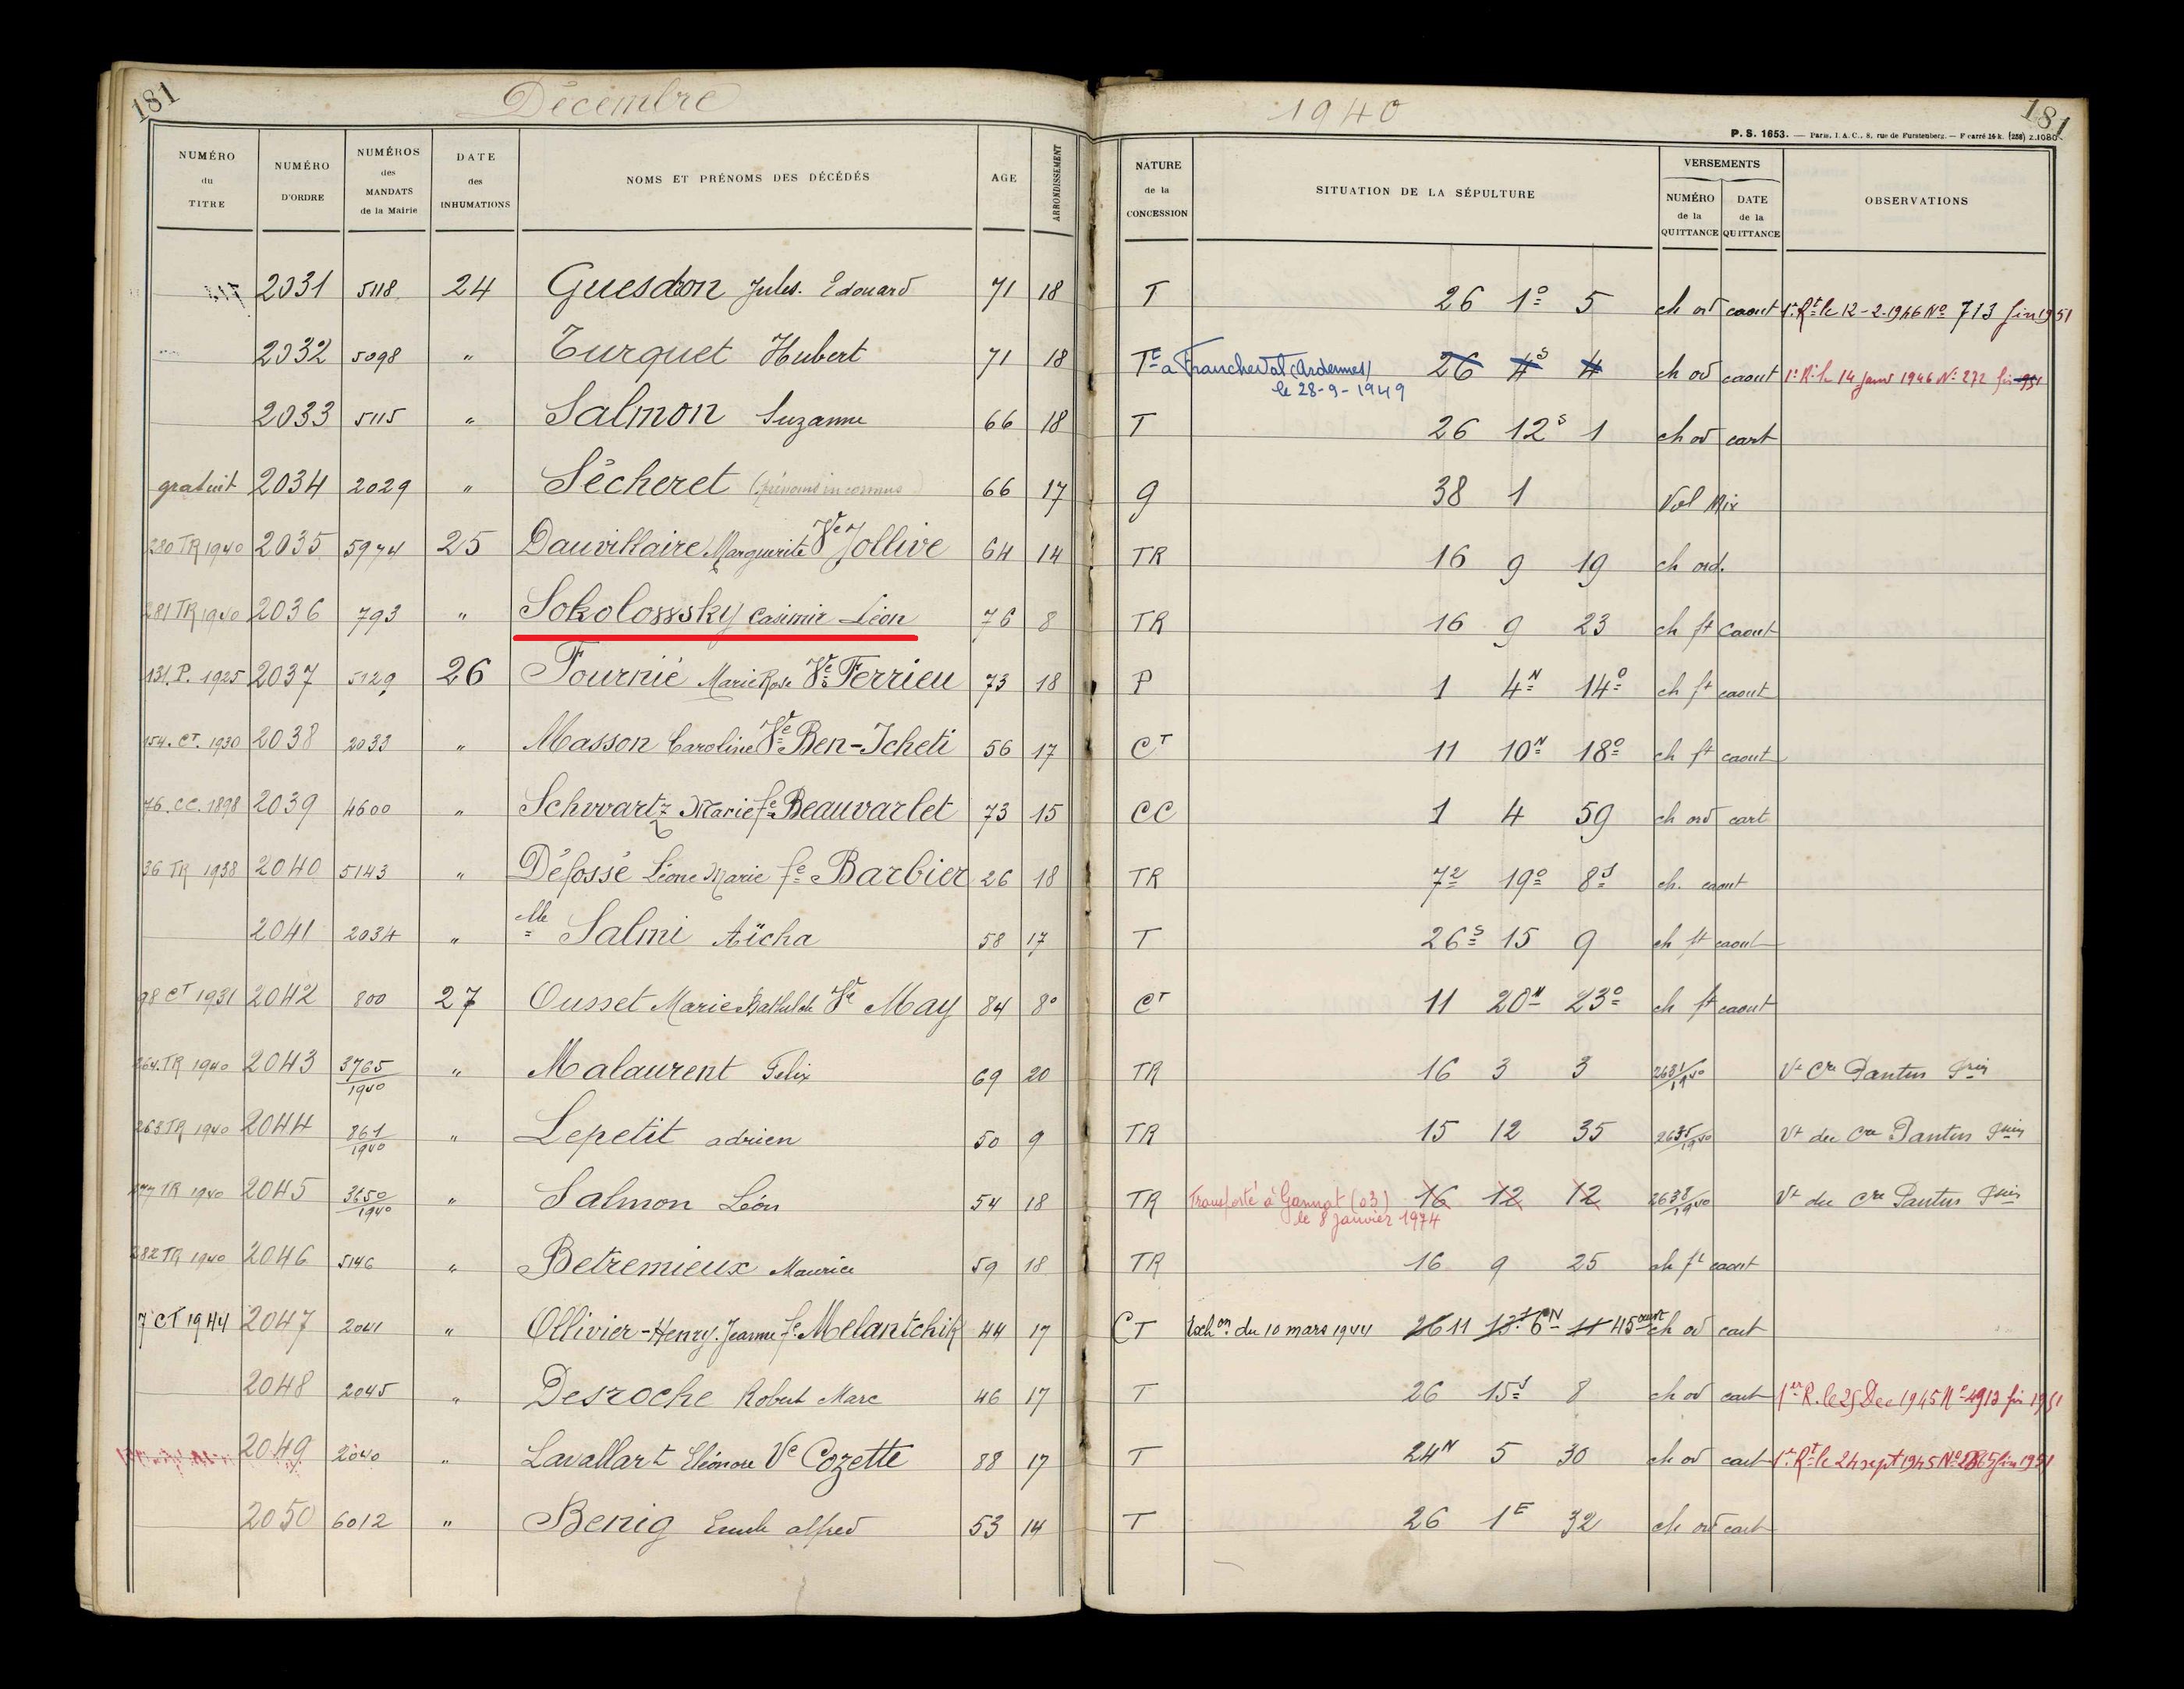 181 Décembre 1940 181
P. S. 1653. — Paris, I. A. C., 8, rue de Furstenberg. — F carré 24 k. (256) z.1080.
NUMÉRO du TITRE
NUMÉRO D'ORDRE
NUMÉROS des MANDATS de la Mairie
DATE des INHUMATIONS
NOMS ET PRÉNOMS DES DÉCÉDÉS
AGE
ARRONDISSEMENT
NATURE de la CONCESSION
SITUATION DE LA SÉPULTURE
VERSEMENTS
NUMÉRO de la QUITTANCE
DATE de la QUITTANCE
OBSERVATIONS
2031 5118 24 Guesdon Jules. Edouard 71 18 T 26 1° 5 ch od caout 1er Rt le 12-2-1946 No 713 fin 1951
2032 5098 " Turquet Hubert 71 18 T 26 4S 4 ch od caout 1er Rt le 14 janv 1946 No 272 fin 951
Té a Francheval (Ardennes)
le 28-9-1949
2033 5115 " Salmon Suzanne 66 18 T 26 12S 1 ch od cart
gratuit 2034 2029 " Sécheret (prénoms inconnus) 66 17 g 38 1 Vol Mix
280 TR 1940 2035 5974 25 Dauvillaire Marguerite Ve Jollive 64 14 TR 16 9 19 ch ord.
281 TR 1940 2036 793 " Sokolowsky Casimir Léon 76 8 TR 16 9 23 ch ft Caout
131. P. 1925 2037 5129 26 Fournié Marie Rose Ve Ferrieu 73 18 P 1 4N 14° ch ft caout
154. CT. 1930 2038 2033 " Masson Caroline Ve Ben-Icheti 56 17 CT 11 10N 18° ch ft caout
76. CC. 1898 2039 4600 " Schwartz Marie fe Beauvarlet 73 15 CC 1 4 59 ch ord cart
36 TR 1938 2040 5143 " Défossé Léone Marie fe Barbier 26 18 TR 72 19° 8S ch. caout
2041 2034 " Mlle Salmi Aïcha 58 17 T 26S 15 9 ch ft caout
98 CT 1931 2042 800 27 Ousset Marie Bathilde Ve May 84 8° CT 11 20N 23° ch ft caout
264. TR 1940 2043 3765/1940 " Malaurent Felix 69 20 TR 16 3 3 Vt Cre Pantin
263 TR 1940 2044 861/1940 " Lepetit adrien 50 9 TR 15 12 35 2635/1940 Vt du Cre Pantin
277 TR 1940 2045 3650/1940 " Salmon Léon 54 18 TR Transporté à Gannat (03) 16 12 12 2638/1940 Vt du Cre Pantin
le 8 janvier 1974
282 TR 1940 2046 5146 " Betremieux Maurice 59 18 TR 16 9 25 ch ft caout
7 CT 1944 2047 2041 " Ollivier-Henry. Jeanne fe Melantchik 44 17 CT Echon du 10 mars 1944 26 11 13S 6N 11 45ouest ch od cart
2048 2045 " Desroche Robert Marc 46 17 T 26 15S 8 ch od cart 1er R. le 25 Dec 1945 No 4913 fin 1951
2049 2040 " Lavallart Eléonore Ve Cozette 88 17 T 24N 5 30 ch od cart 1er Rt le 24 sept 1945 No 2865 fin 1951
2050 6012 " Benig Emile alfred 53 14 T 26 1E 32 ch ord cart